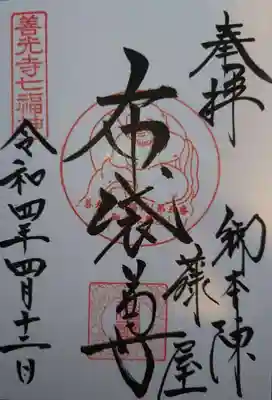 奉拝
御本陳
藤屋
布袋尊
善光寺七福神
令和四年四月十二日